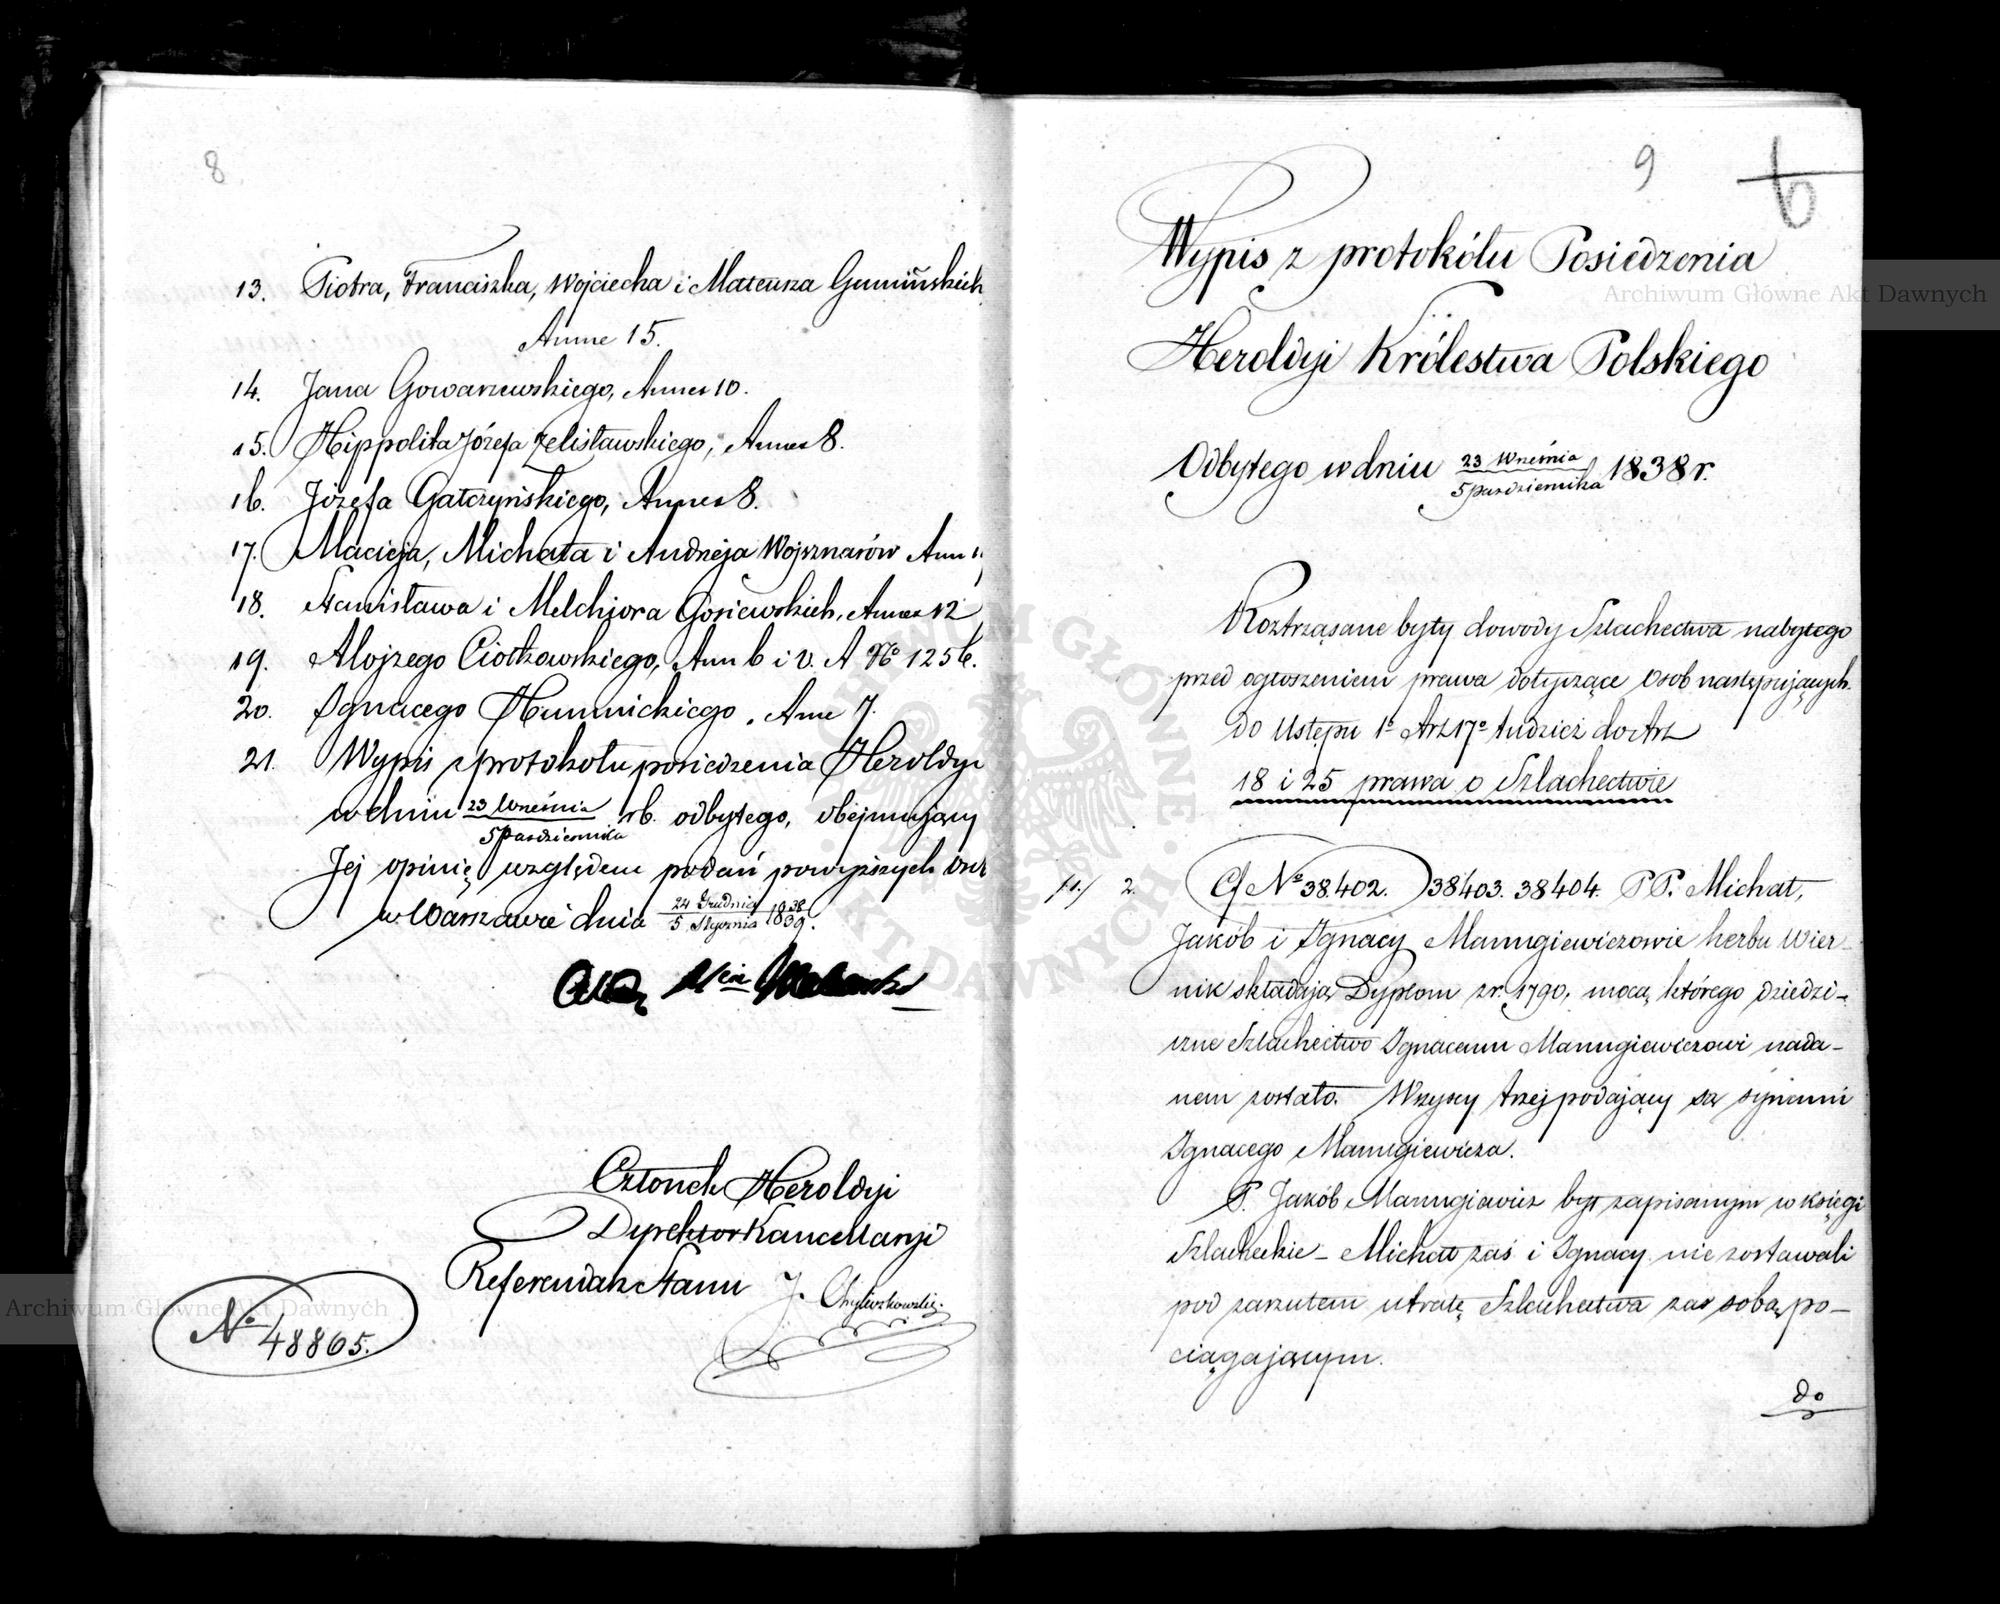 8
13. Piotra, Franciszka, Wojciecha i Mateusza Gumińskich
Annex 15.
14. Jana Gowarzewskiego, Annex 10.
15. Hippolita Józefa Zelisławskiego, Annex 8.
16. Józefa Gałczyńskiego, Annex 8.
17. Macieja, Michała i Andrzeja Wojsznarów Ann
18. Stanisława i Melchiora Gosiewskich, Annex 12
19. Alojzego Ciołkowskiego, Ann 6 i v. A No 1256.
20. Ignacego Humnickiego, Anne 7.
21. Wypis z protokołu posiedzenia Heroldyi
w dniu 23 Września / 5 Października rb. odbytego, obejmujący
Jej opinię względem podań powyższych
w Warszawie dnia 24 Grudnia / 5 Stycznia 1838/1839.
Członek Heroldyi
Dyrektor Kancellaryi
Referendarz Stanu J. Chyliczkowski
No 48865.
9 6
Wypis z protokółu Posiedzenia
Heroldyi Królestwa Polskiego
Odbytego w dniu 23 Września / 5 Października 1838 r.
Roztrząsane były dowody Szlachectwa nabytego
przed ogłoszeniem prawa dotyczące Osob następujących.
do Ustępu 1o Art 17o tudzież do Art
18 i 25 prawa o Szlachectwie
2. No 38.402. 38403. 38404. PP. Michał,
Jakób i Ignacy Manugiewiczowie herbu Wier-
nik składają Dyplom z r. 1790, mocą którego dziedzi-
czne Szlachectwo Ignacemu Manugiewiczowi nada-
nem zostało. Wszyscy trzej podający są synami
Ignacego Manugiewicza.
P. Jakób Manugiewicz był zapisanym w księgi
Szlacheckie – Michał zaś i Ignacy nie zostawali
pod zarzutem utratę Szlachectwa za sobą po-
ciągającym.
do
Archiwum Główne Akt Dawnych
Archiwum Główne Akt Dawnych
ARCHIWUM GŁÓWNE AKT DAWNYCH